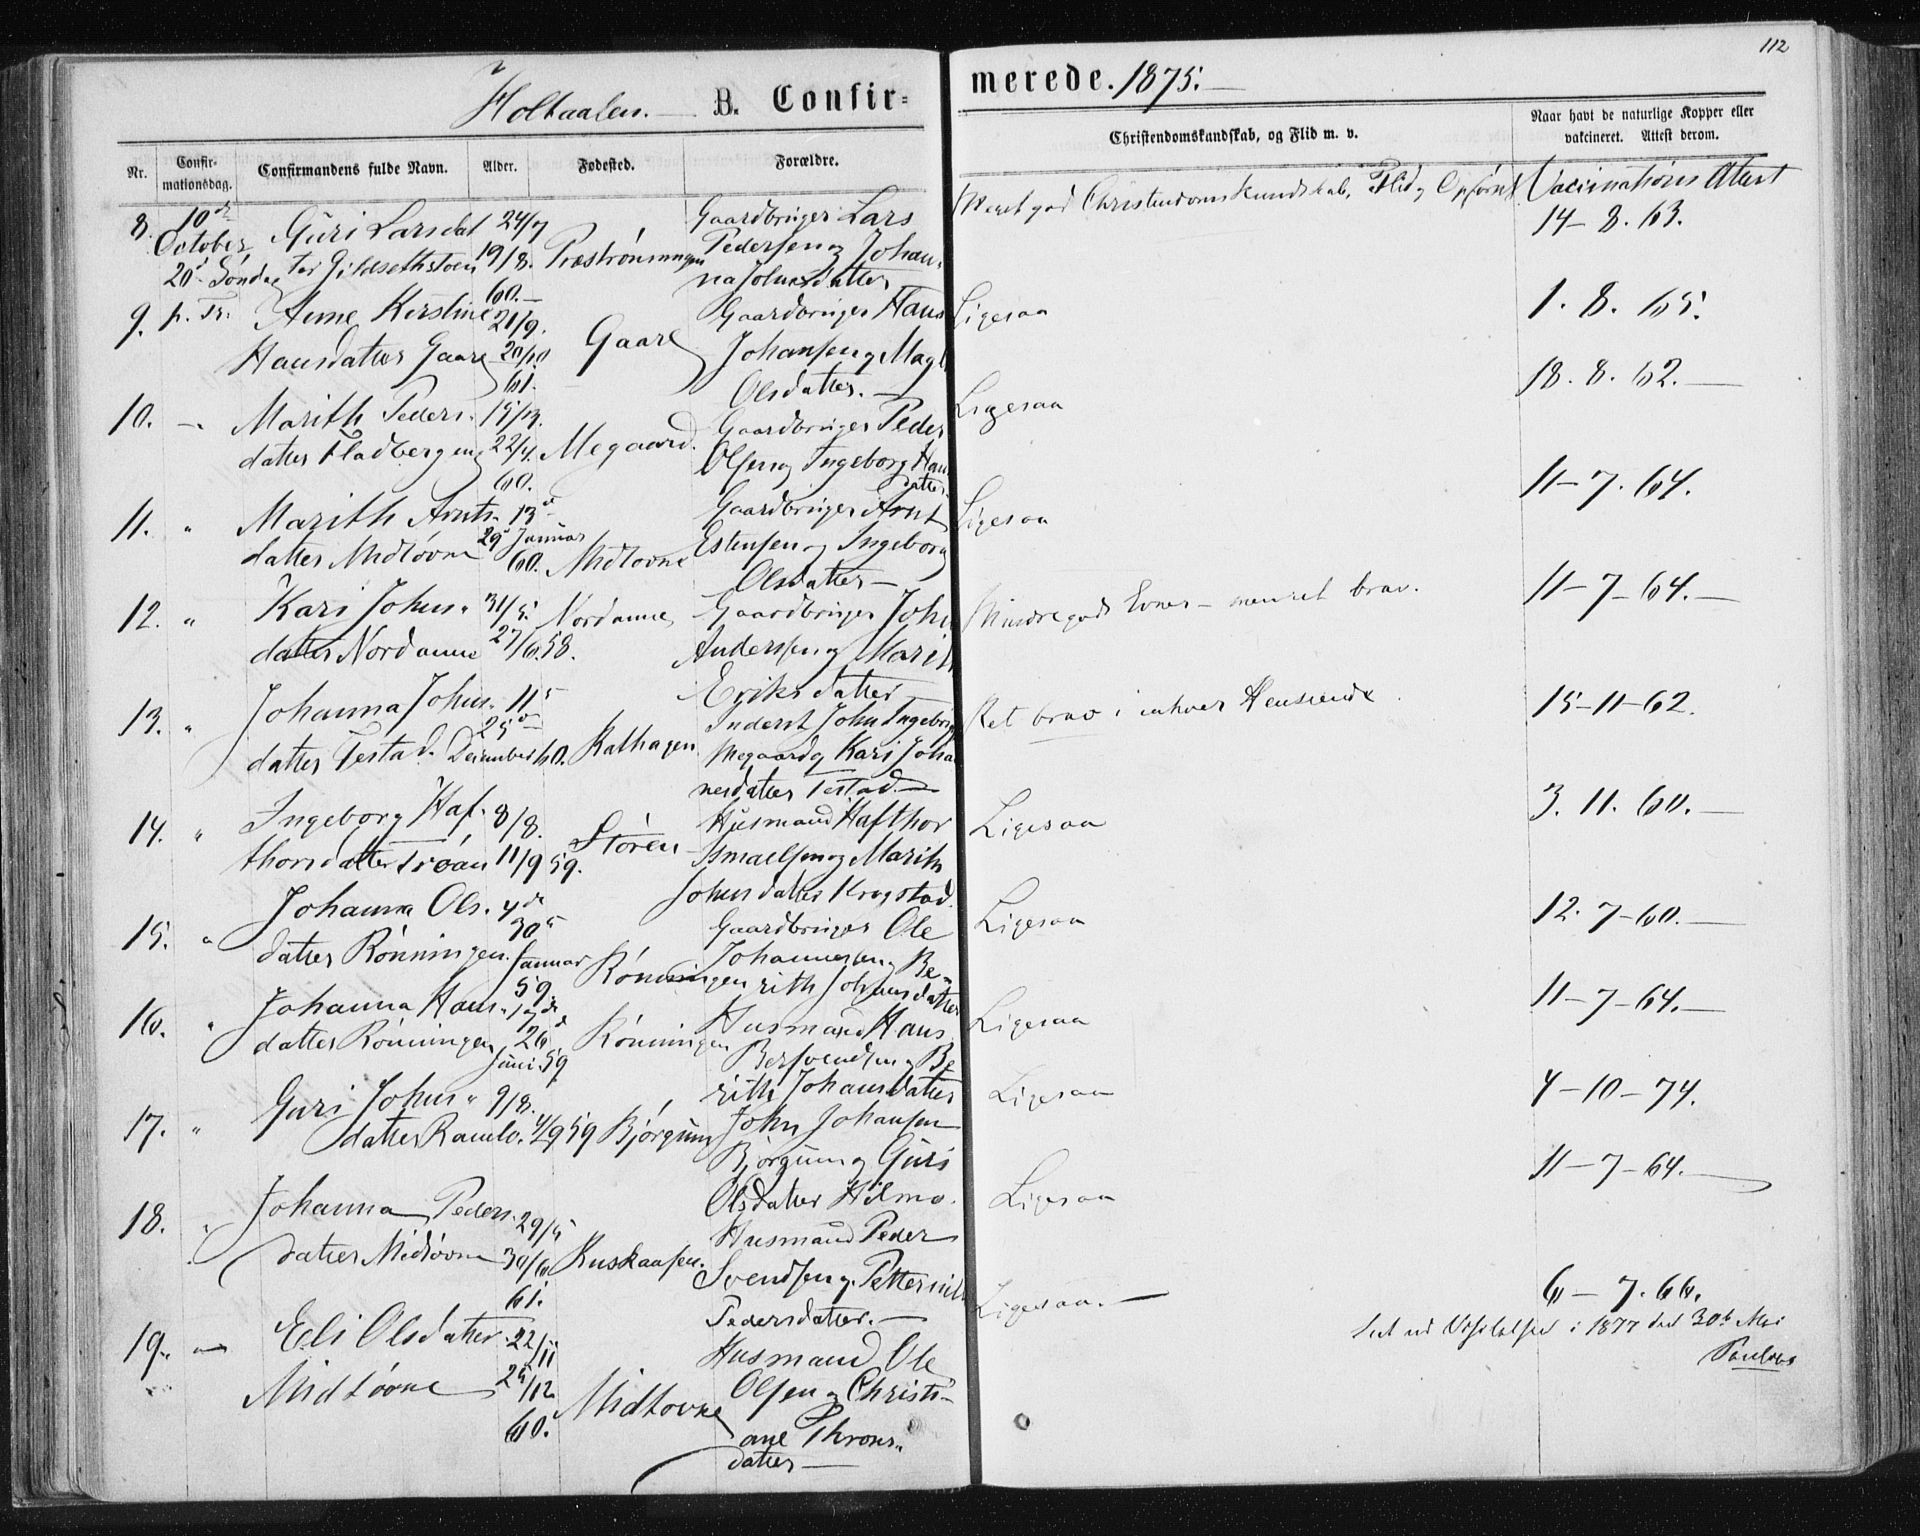 112
Holtaalen. B. Confir=
merede. 1875.
Nr.
Confir-
mationsdag.
Confirmandens fulde Navn.
Alder.
Fødested.
Forældre.
Christendomskundskab, og Flid m. v.
Naar havt de naturlige Kopper eller
vakcineret. Attest derom.
8. 10de October 20de Søndag p. Tr.
Guri Larsdat
ter Gildsethstoen
24/7
19/8.
60.
Gaardbruger Lars
Pedersen og Johan-
na Johnsdatter
Meget god Christendoms Kundskab, Flid og Opførsel
Vaccinations Attest
14-8. 63.
9.
Anne Kirstine
Hansdatter Gaare
21/9.
20/10
61.
Gaare
Gaardbruger Hans
Johansen og Magl
Olsdatter.
Ligesaa
1. 8. 65.
10.
Marith Peders-
datter Fladbergeng
22/4.
60.
Megaard.
Gaardbruger Peder
Olsen og Ingeborg Han
datter
Ligesaa
18. 8. 62.
11. "
Marith Arnts-
datter Midtøvne
13de
29de Januar
60.
Midtøvne
Gaardbruger Arnt
Estensen og Ingeborg
Olsdatter
Ligesaa
11-7. 64.
12. "
Kari Johns-
datter Nordaune
31/5.
27/6. 58.
Nordaune
Gaardbruger John
Andersen og Marit
Eriksdatter
Mindre gode Evner - men ret brav.
11-7-64.
13. "
Johanna Johns-
datter Testad.
11te
25de
December 60.
Kathagen
Inderst John Ingebrigt
Megaard og Kari Joha
nesdatter Testad.
Ret brav i enhver Henseende.
15-11-62.
14. "
Ingeborg Haf-
thorsdatter Trøan
8/8.
11/9 59.
Støren
Husmand Hafthor
Ismaelsen og Marith
Johnsdatter Krogstad.
Ligesaa
3. 11. 60.
15. "
Johanna Ols-
datter Rønningen.
4de
30te
Januar
59.
Rønningen
Gaardbruger Ole
Johannesen og Be-
rith Johnsdatter
Ligesaa
12. 7-60.
16. "
Johanna Hans-
datter Rønningen
17de
26de
Juni 59
Rønningen
Husmand Hans
Bersvendsen og Be
rith Johansdatter
Ligesaa
11-7-64.
17. "
Guri Johns-
datter Ramlo.
9/8.
4/9 59
Bjørgum
John Johansen
Bjørgum og Guri
Olsdatter Hilmo.
Ligesaa
4-10-74.
18. "
Johanna Peders-
datter Midtøvne
29/5
30/6
61.
Kuskaasen.
Husmand Peder
Svendsen og Petternille
Pedersdatter.
Ligesaa
11-7-64.
19. "
Eli Olsdatter
Midtøvne
22/11
25/12
60.
Midtøvne
Husmand Ole
Olsen og Christi-
ane Throns-
datter
Ligesaa.
6-7. 66.
i 1877 den 30te Mai